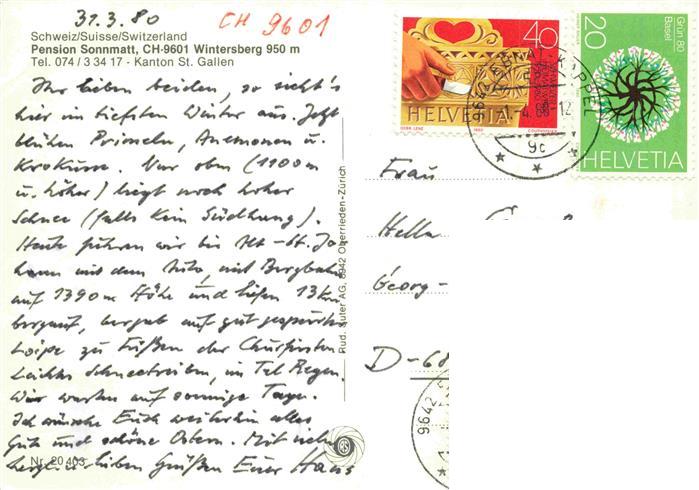 31.3.80
CH 9601
Schweiz/Suisse/Switzerland
Pension Sonnmatt, CH-9601 Wintersberg 950 m
Tel. 074 / 3 34 17 - Kanton St. Gallen
Ihr lieben beiden, so sieht's
hier im tiefsten Winter aus. Jetzt
blühen Primeln, Anemonen u.
Krokusse. Nur oben (1100m
u. höher) liegt noch hoher
Schnee (falls kein Südhang).
Heute fuhren wir bis Alt-St. Jo-
hann mit dem Auto, mit Bergbahn
auf 1390m Höhe und liefen 13km
bergauf, bergab auf gut gespurter
Loipe zu Füßen der Churfirsten.
Leichtes Schneetreiben, im Tal Regen.
Wir warten auf sonnige Tage.
Ich wünsche Euch weiterhin alles
Gute und schöne Ostern. Mit vielen
herzlich lieben Grüßen Euer Hans
Nr. 20 403
Rud. Suter AG, 8942 Oberrieden-Zürich
40
HELVETIA
GEBR. LENZ
1980
COURVOISIER
20
Grün 80
Basel
HELVETIA
9642 EBNAT-KAPPEL
1.-4.80-12
9c
Frau
Hella
Georg-
D-68
9642